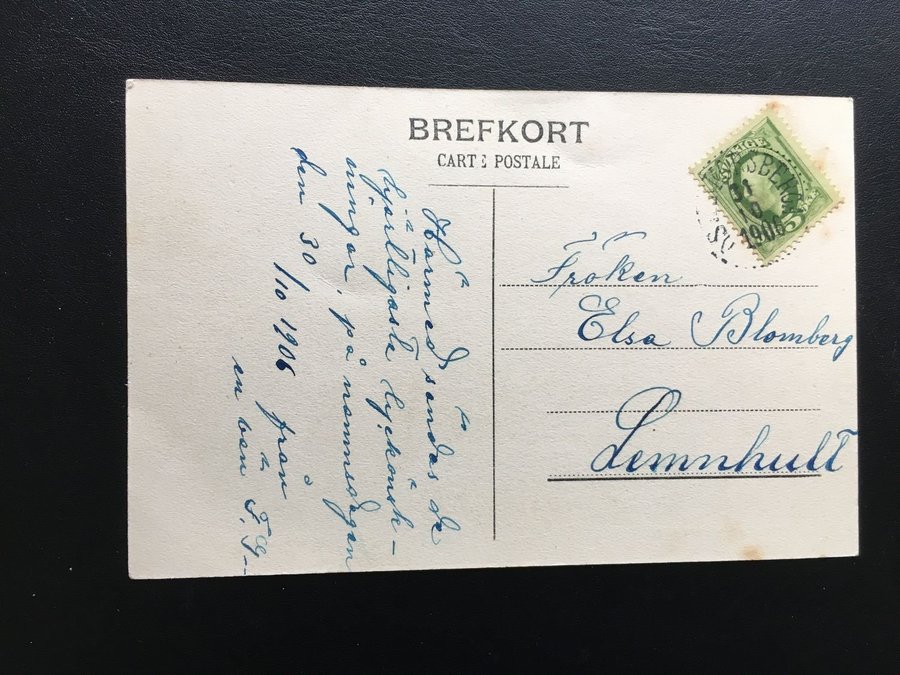 BREFKORT
CARTE POSTALE
Härmed sändas de
hjärtligaste lyckönsk-
ningar på namnsdagen
den 30/10 1906 från
en vän F. G.
SVERIGE
1906
Fröken
Elsa Blomberg
Lemnhult